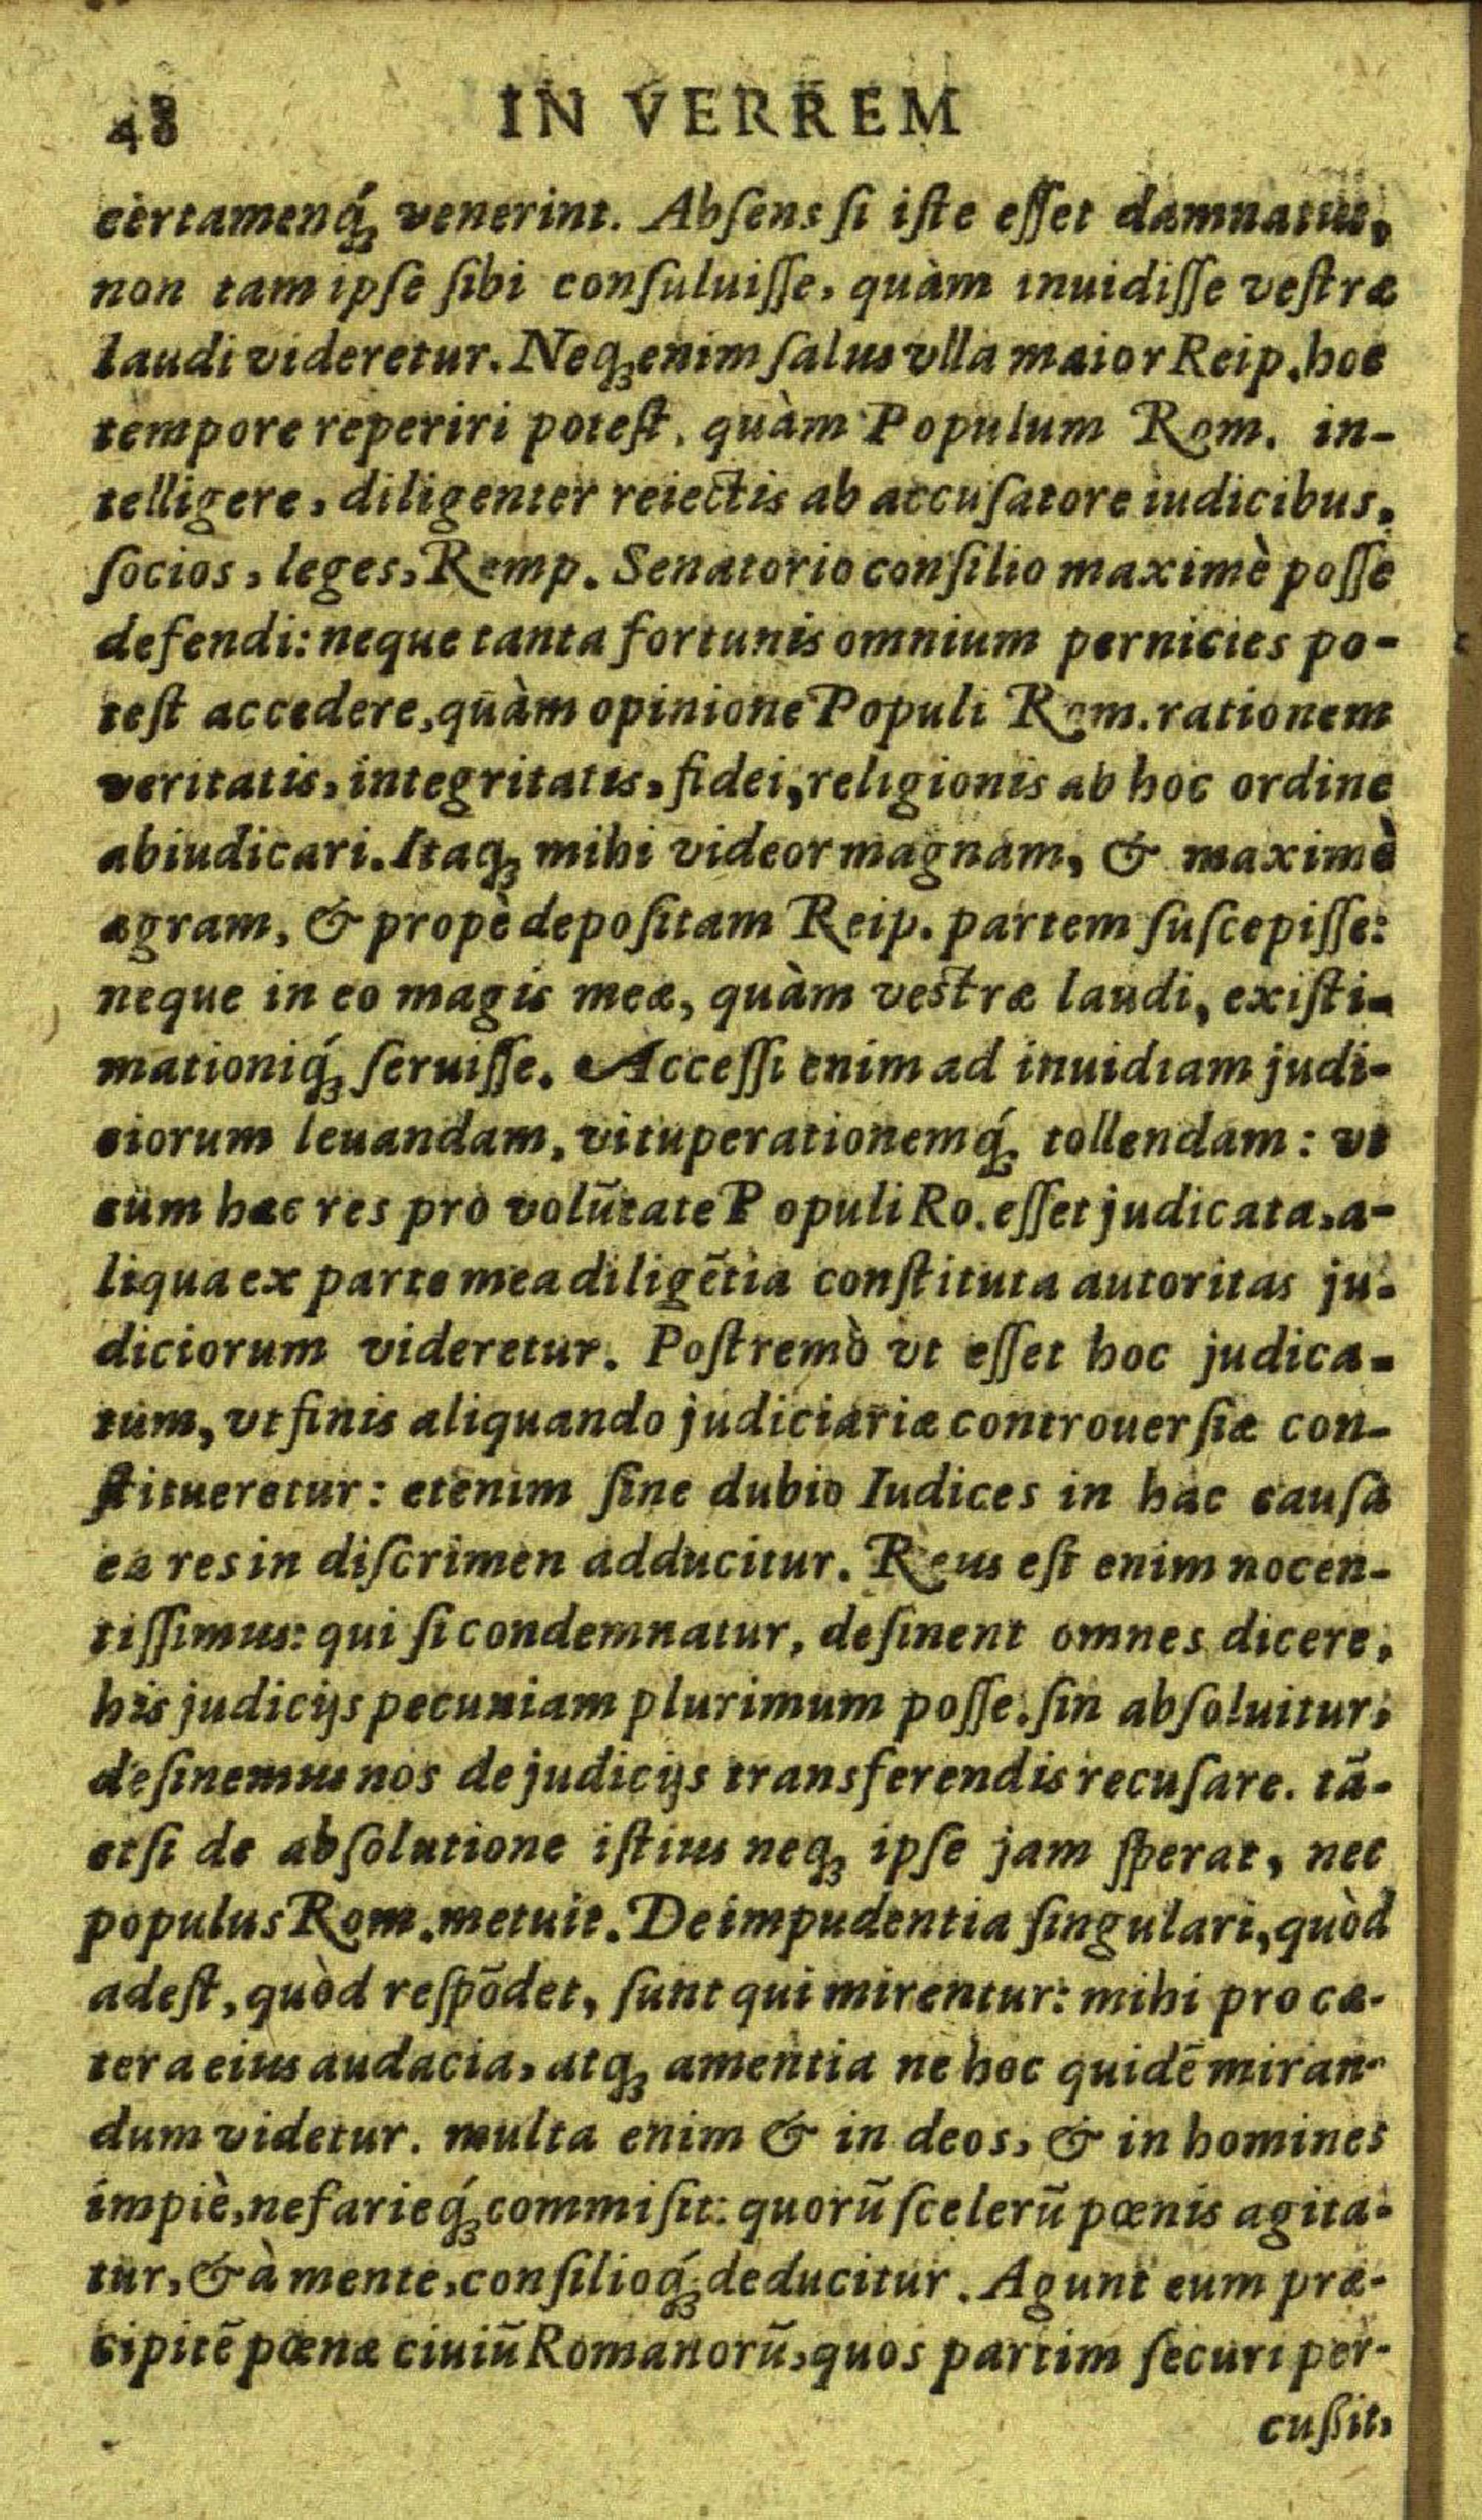 48 IN VERREM
certamenq́ꝫ venerint. Abſens ſi iſte eſſet damnatus,
non tam ipſe ſibi conſuluiſſe, quàm inuidiſſe veſtræ
laudi videretur. Neqꝫ enim ſalus vlla maior Reip. hoc
tempore reperiri poteſt, quàm Populum Rom. in-
telligere, diligenter reiectis ab accuſatore iudicibus,
ſocios, leges, Remp. Senatorio conſilio maximè poſſe
defendi: neque tanta fortunis omnium pernicies po-
teſt accedere, quàm opinione Populi Rom. rationem
veritatis, integritatis, fidei, religionis ab hoc ordine
abiudicari. Itaqꝫ mihi videor magnam, & maximè
ægram, & propè depoſitam Reip. partem ſuſcepiſſe:
neque in eo magis meæ, quàm vestræ laudi, exiſti-
mationiq́ꝫ ſeruiſſe. Acceſſi enim ad inuidiam judi-
ciorum leuandam, vituperationemq́ꝫ tollendam: vt
cum hæc res pro volūtate Populi Ro. eſſet judicata, a-
liqua ex parte mea diligētia conſtituta autoritas ju-
diciorum videretur. Poſtremò vt eſſet hoc judica-
tum, vt finis aliquando judiciariæ controuerſiæ con-
ſtitueretur: etenim ſine dubio Iudices in hac cauſa
ea res in diſcrimen adducitur. Reus eſt enim nocen-
tiſſimus: qui ſi condemnatur, deſinent omnes dicere,
his judicijs pecuniam plurimum poſſe. ſin abſoluitur,
deſinemus nos de judicijs transferendis recuſare. tā-
etſi de abſolutione iſtius neqꝫ ipſe jam ſperat, nec
populus Rom. metuit. De impudentia ſingulari, quòd
adeſt, quòd reſpōdet, ſunt qui mirentur: mihi pro cæ-
tera eius audacia, atqꝫ amentia ne hoc quidē miran-
dum videtur. multa enim & in deos, & in homines
impiè, nefarieq́ꝫ commiſit: quorū ſcelerū pœnis agita-
tur, & à mente, conſilioq́ꝫ deducitur. Agunt eum præ-
cipitē pœnæ ciuiū Romanorū, quos partim ſecuri per-
cuſſit,